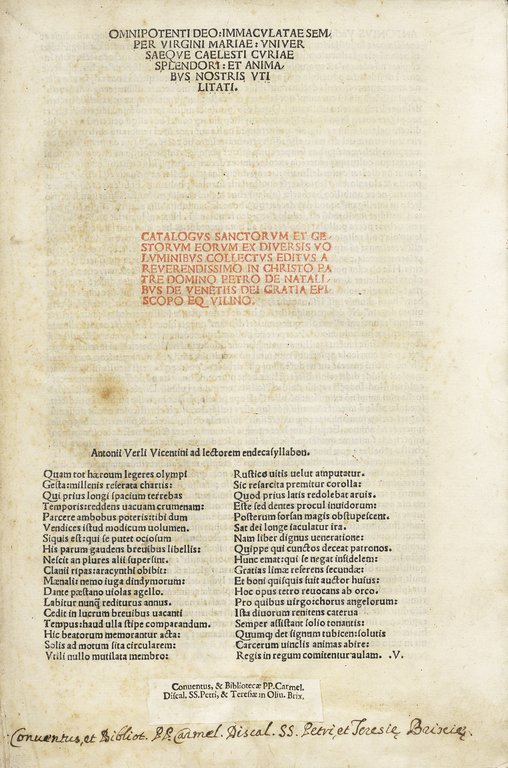 OMNIPOTENTI DEO: IMMACVLATAE SEM,
PER VIRGINI MARIAE: VNIVER
SAEQVE CAELESTI CVRIAE
SPLENDORI: ET ANIMA,
BVS NOSTRIS VTI
LITATI.
CATALOGVS SANCTORVM ET GE,
STORVM EORVM EX DIVERSIS VO
LVMINIBVS COLLECTVS EDITVS A
REVERENDISSIMO IN CHRISTO PA
TRE DOMINO PETRO DE NATALI,
BVS DE VENETIIS DEI GRATIA EPI
SCOPO EQVILINO.
Antonii Verli Vicentini ad lectorem endecasyllabon.
Quam tot haroum legeres olympi
Gesta: millenis reserata chartis:
Qui prius longi spacium terrebas
Temporis: reddens uacuam crumenam:
Parcere ambobus poteris: tibi dum
Vendices istud modicum uolumen.
Siquis est: qui se putet ociosum
His parum gaudens breuibus libellis:
Nescit an plures alii supersint.
Clanii ripas: aracynthi obibit:
Mænali: nemo iuga dindymorum:
Dante pæstano uiolas agello.
Labitur nunq̃ rediturus annus.
Cedit in luxrum breuibus uacanti
Tempus: haud ulla stipe comparandum.
Hic beatorum memorantur acta:
Solis ad motum sita circularem:
Vtili nullo mutilata membro:
Rustico uitis uelut amputatur.
Sic resarcita premitur corolla:
Quod prius latis redolebat aruis.
Este sed dentes procul inuidorum:
Posterum forsan magis obstupescent.
Sat dei longe iaculatur ira.
Nam liber dignus ueneratione:
Quippe qui cunctos deceat patronos.
Hunc emat: qui se negat infidelem:
Gratias limæ referens secundæ:
Et boni quisquis fuit auctor huius:
Hoc opus tetro reuocans ab orco.
Pro quibus uirgo: chorus angelorum:
Ista diuorum renitens caterua
Semper assistant solio tonantis:
Quumq; det signum tubicen: solutis
Carcerum uinclis animas abire:
Regis in regum comitentur aulam. .V.
Conventus, & Bibliotecæ PP. Carmel.
Discal. SS. Petri, & Teresiæ in Oliu. Brix.
Conuentus, et Bibliot. PP. Carmel. Discal. SS. Petri, et Teresię Brixię